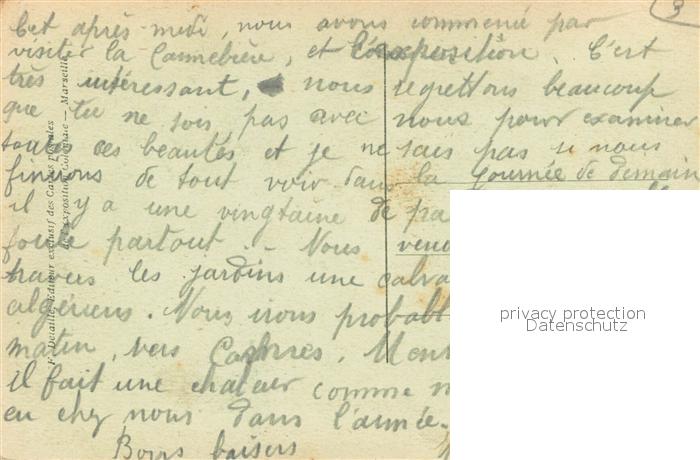 3
Cet après-midi, nous avons commencé par
visiter la Cannebière, et l'exposition. C'est
très intéressant, nous regrettons beaucoup
que tu ne sois pas avec nous pour examiner
toutes ces beautés et je ne sais pas si nous
finirons de tout voir dans la journée de demain
il y a une vingtaine de pa
foule partout. - Nous
travers les jardins une
algériens. Nous irons probabl
matin, vers
il fait une chaleur comme
eu chez nous dans l'année.
Bons baisers
F. Detaille, Editeur exclusif des Cartes postales
de l'Exposition Coloniale — Marseille
privacy protection
Datenschutz